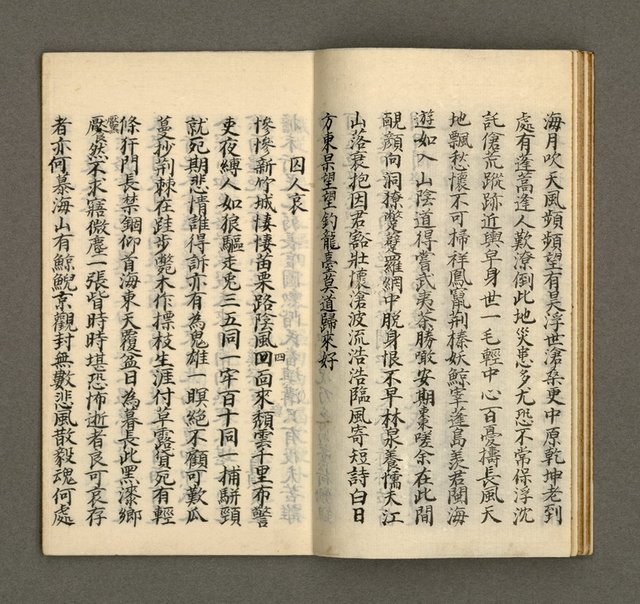 海月吹天風頻頻望有昊浮世滄桑更中原乾坤老到
處有蓬蒿逢人歎潦倒此地災患多尤恐不常保浮沈
託傖荒蹤跡近輿皁身世一毛輕中心百憂擣長風天
地飄愁懷不可掃祥鳳竄荊榛妖鯨宰蓬島羨君闊海
遊如入山陰道得嘗武夷茶勝噉安期棗嗟余在此間
靦顏向洞獠斃斃羅網中脫身恨不早林泉養懦夫江
山落衰抱因君豁壯懷滄波流浩浩臨風寄短詩白日
方東杲望望釣龍臺莫道歸來好
囚人哀
慘慘新竹城悽悽苗栗路陰風四面來頹雲千里布警
吏夜縛人如狼驅走兎三五同一牢百十同一捕駢頸
就死期悲情誰得訴亦有為鬼雄一瞑絕不顧可歎瓜
蔓抄荊棘在跬步斃木作摽枝生涯付草露貸死有輕
條犴門長禁錮仰首海東天覆盆日為暮長此黑漆鄉
黶然不求寤微塵一張皆時時堪恐怖逝者良可哀存
者亦何慕海山有鯨鯢京觀封無數悲風散毅魂何處